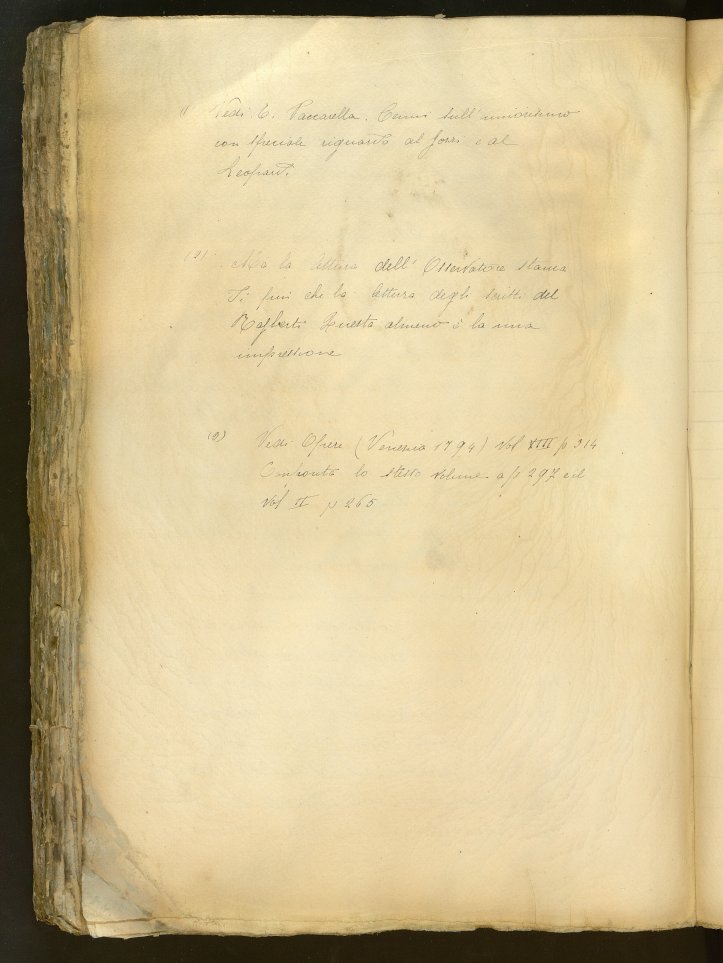 (1 Vedi C. Vaccarella. Cenni sull'umorismo
con speciale riguardo al Gozzi e al
Leopardi.
(2) Ma la lettura dell'Osservatore stanca
più che la lettura degli scritti del
Questa almeno è la mia
impressione
(2) Vedi Opere (Venezia 1794) Vol XIII p 314
Confronta lo stesso volume a p 297 ed
Vol II p 265